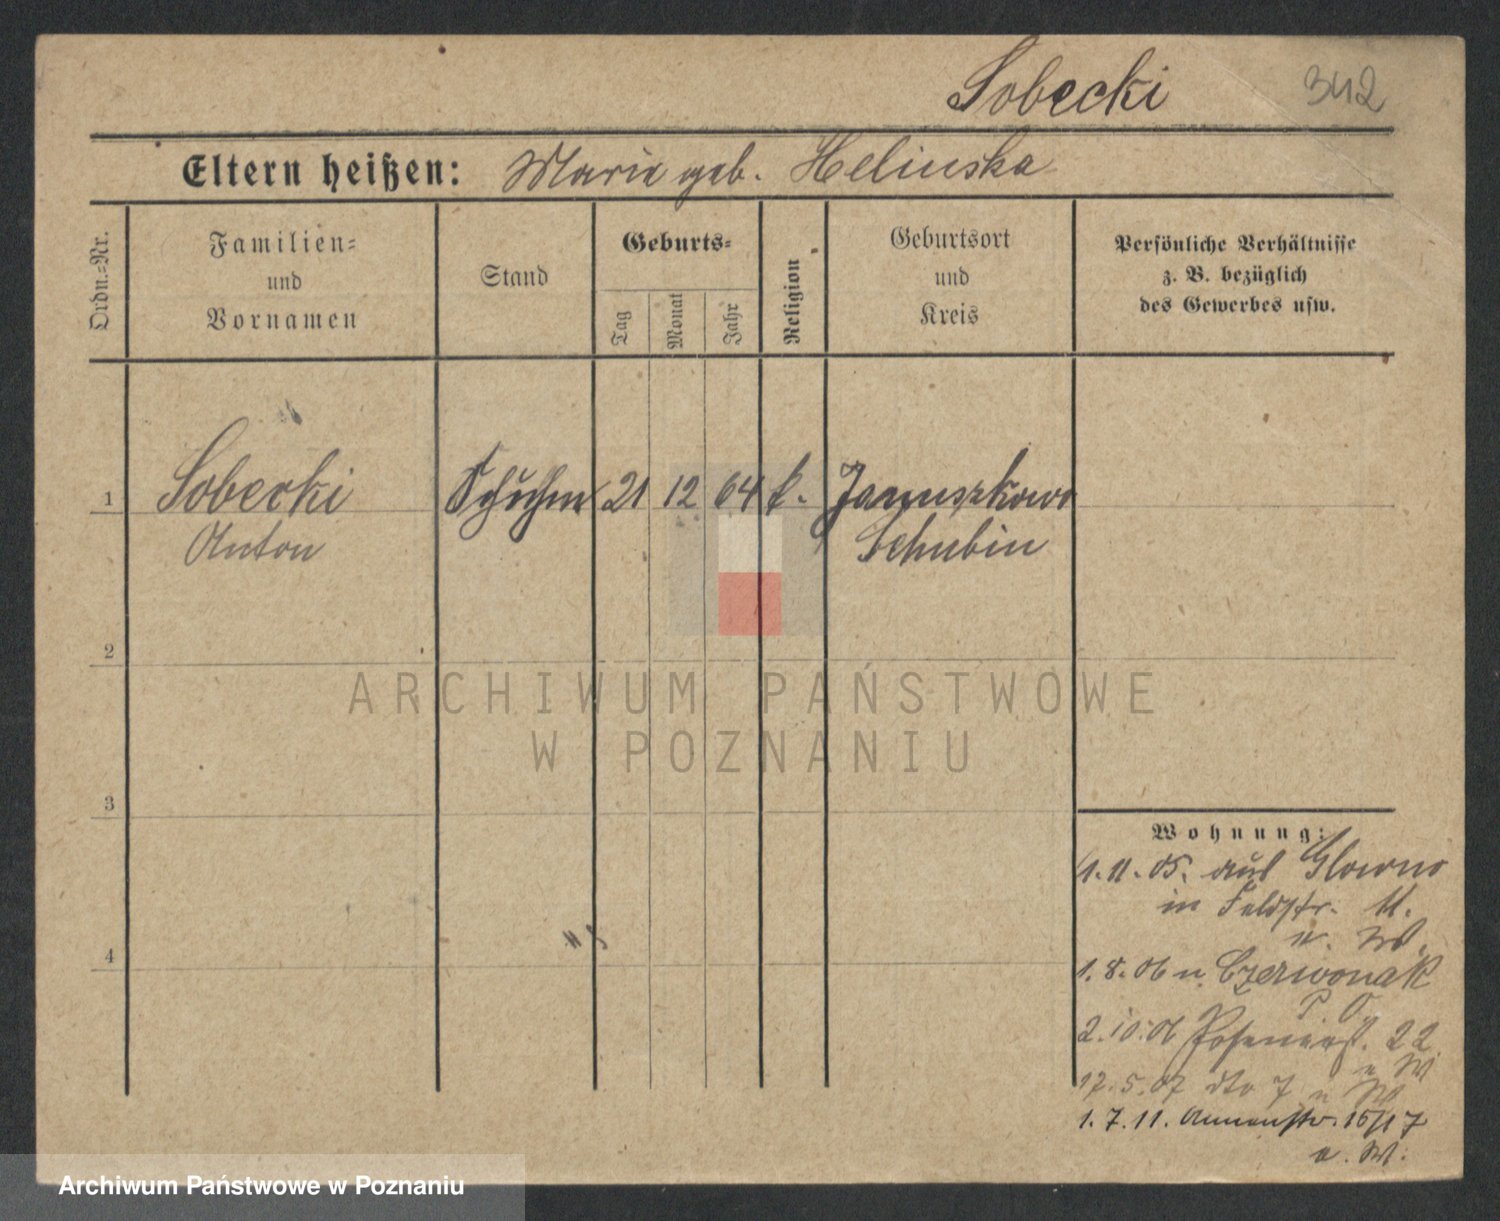 Sobecki 342
Eltern heißen: Marie geb. Helinska
Ordn.=Nr.
Familien=
und
Vornamen
Stand
Geburts=
Tag
Monat
Jahr
Religion
Geburtsort
und
Kreis
Persönliche Verhältnisse
z. B. bezüglich
des Gewerbes usw.
1 Sobecki Schuhm 21 12 64 k. Januszkowo
Anton Schubin
2
3
4
ARCHIWUM PAŃSTWOWE
W POZNANIU
Wohnung:
1.11.05. aus Glowno
in Feldstr. 11.
a. W.
1.8.06 n. Czerwonak
P. O.
2.10.06 22
W
17.5.07 dto 7 W
1.7.11. Annenstr. 15/17
a. W.
Archiwum Państwowe w Poznaniu